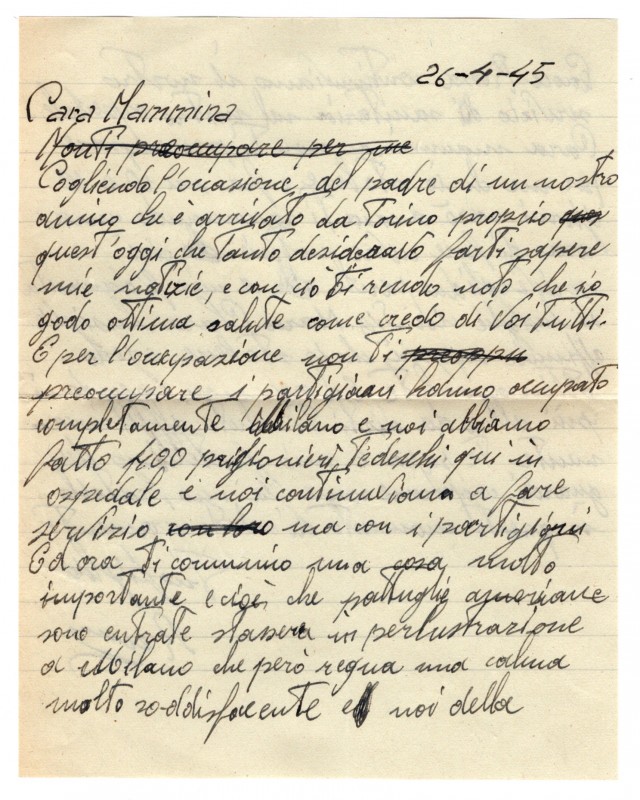 26-4-45
Cara Mammina
Non ti preoccupare per me
Cogliendo l'occasione, del padre di un nostro
amico che è arrivato da Torino proprio
quest'oggi che tanto desideravo farti sapere
mie notizie, e con ciò ti rendo noto che io
godo ottima salute come credo di Voi tutti.
E per l'occupazione non ti preoppu
preoccupare i partigiani hanno occupato
completamente Milano e noi abbiamo
fatto 400 priglionieri Tedeschi qui in
ospedale e noi continuviamo a fare
servizio con loro ma con i partigiani
Ed ora ti comunico una cosa molto
importante e cioè, che pattuglie americane
sono entrate stassera in perlustrazione
a Milano che però regna una calma
molto so-ddisfacente e noi della